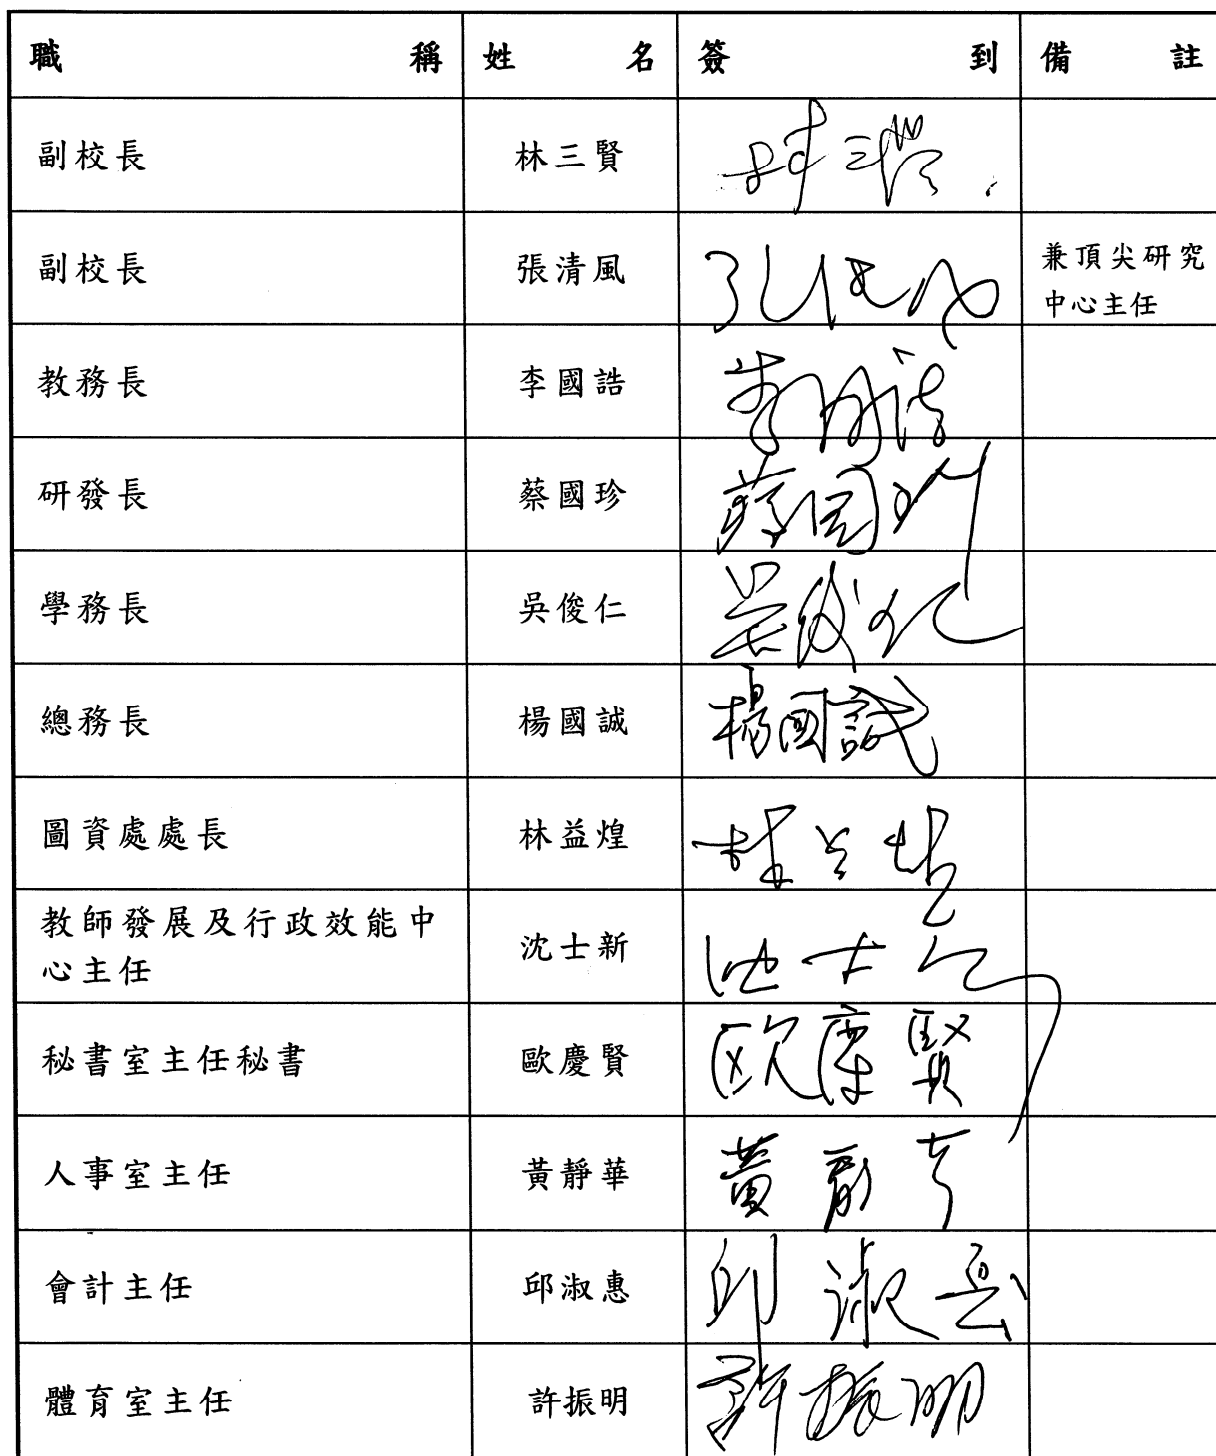 職稱 姓名 簽到 備註
副校長 林三賢 林三賢
副校長 張清風 兼頂尖研究
中心主任
教務長 李國誥 李國誥
研發長 蔡國珍 蔡國珍
學務長 吳俊仁 吳俊仁
總務長 楊國誠 楊國誠
圖資處處長 林益煌 林益煌
教師發展及行政效能中
心主任 沈士新 沈士新
秘書室主任秘書 歐慶賢 欧慶賢
人事室主任 黃靜華
會計主任 邱淑惠 邱淑惠
體育室主任 許振明 許振明